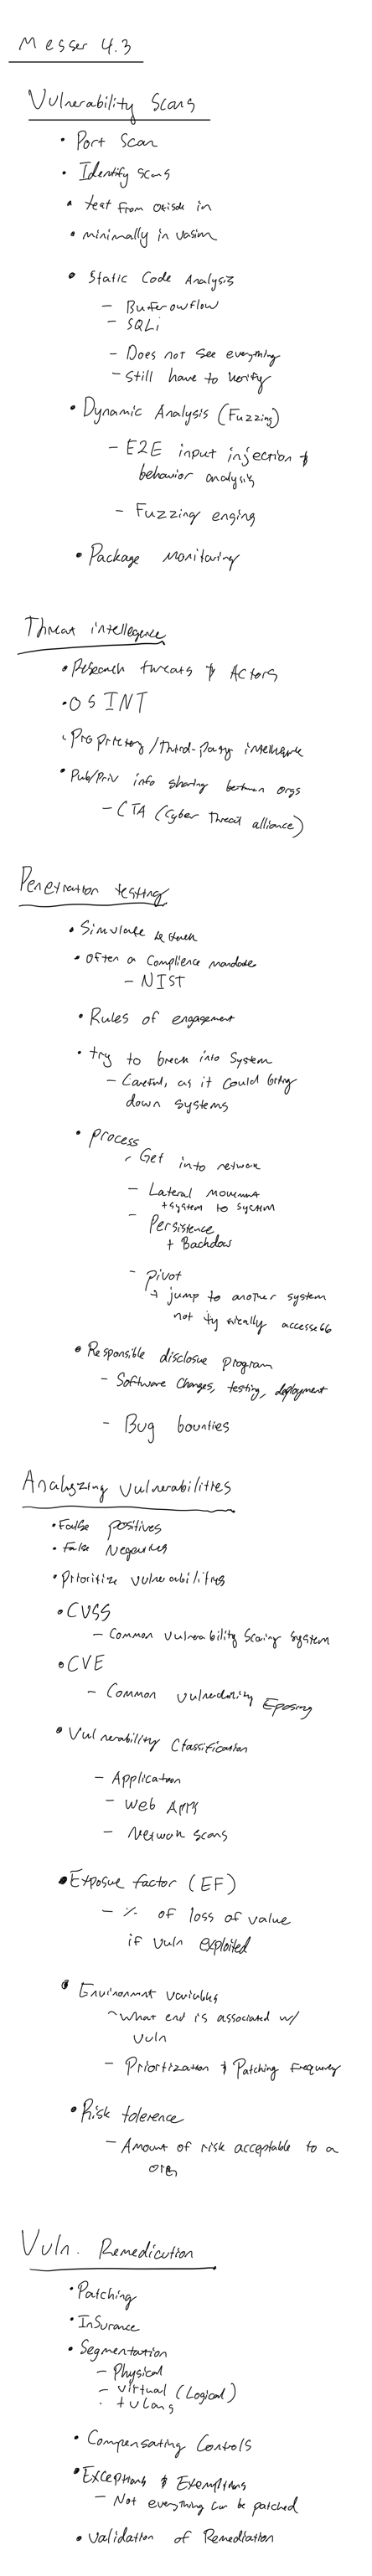 Messer 4.3
Vulnerability Scans
• Port Scan
• Identify scans
• test from outside in
• minimally invasive
• Static Code Analysis
– Buffer overflow
– SQLi
– Does not see everything
– Still have to verify
• Dynamic Analysis (Fuzzing)
– E2E input injection &
behavior analysis
– Fuzzing enging
• Package Monitoring
Threat intellegence
• Research threats & Actors
• OSINT
• Proprietary/third-party intelligence
• Pub/Priv info sharing between orgs
– CTA (Cyber Threat alliance)
Penetration testing
• Simulate attack
• Often a Complience mandate
– NIST
• Rules of engagement
• try to break into System
– Careful, as it could bring
down systems
• process
– Get into network
– Lateral movement
+ system to system
– Persistence
+ Backdoor
– pivot
+ jump to another system
not typically accessed
• Responsible disclosure program
– Software Changes, testing, deployment
– Bug bounties
Analyzing Vulnerabilities
• False positives
• False Negatives
• Prioritize vulnerabilities
• CVSS
– Common Vulnerability Scoring System
• CVE
– Common Vulnerability Eposing
• Vulnerability Classification
– Application
– Web App
– Network scans
• Exposue factor (EF)
– % of loss of value
if vuln exploited
• Environment variables
– What env is associated w/
vuln
– Prioritization & Patching frequency
• Risk tolerence
– Amount of risk acceptable to a
org
Vuln. Remediation
• Patching
• Insurance
• Segmentation
– Physical
– Virtual (Logical)
+ VLans
• Compensating Controls
• Exceptions & Exemptions
– Not everything can be patched
• Validation of Remediation